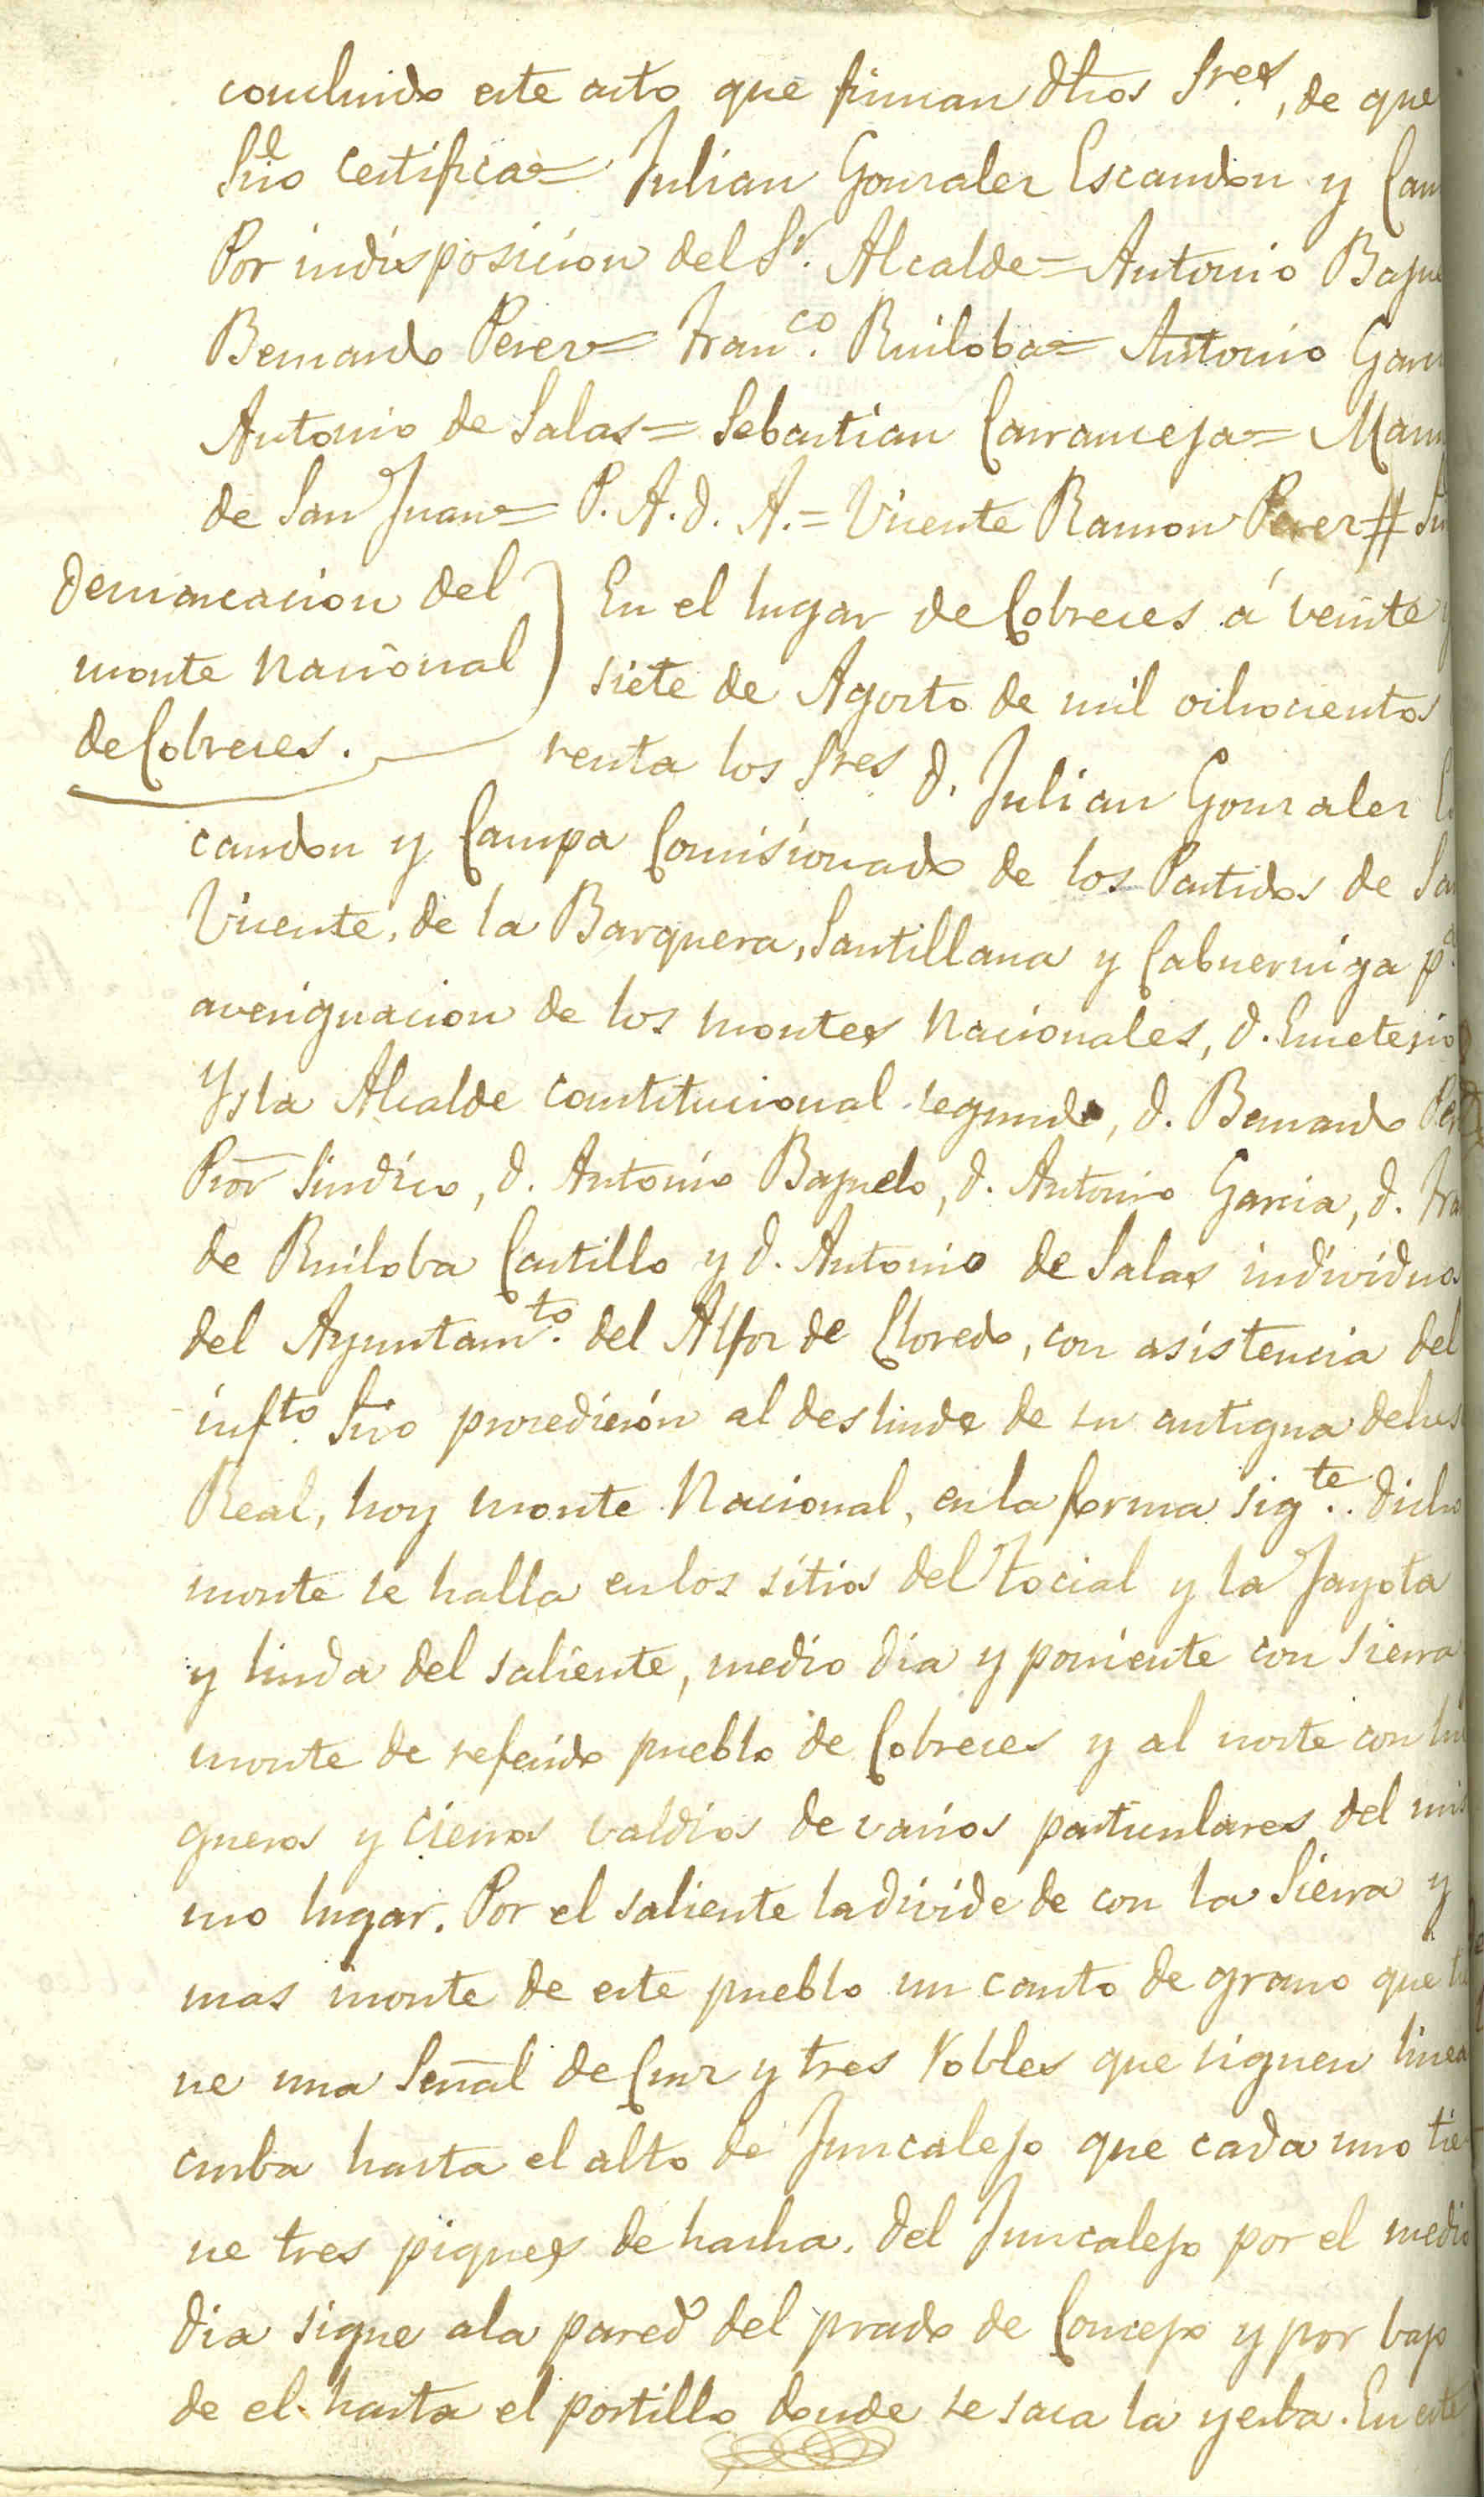 concluido este acto que firman dhos Sres, de que
Srio certifica= Julian Gonzalez Escandon y Cam
Por indisposicion del Sr. Alcalde= Antonio Bajue
Bernardo Perez= Franco. Ruiloba= Antonio Garci
Antonio de Salas= Sebastian Carranceja= Manu
de San Juan= P. A. d. A.= Vicente Ramon Perez #
Demarcacion del
monte nacional
de Cobreces.
En el lugar de Cobreces á veinte y
siete de Agosto de mil ochocientos
renta los Sres D. Julian Gonzalez
candon y Campa Comisionado de los Partidos de San
Vicente, de la Barquera, Santillana y Cabuerniga pa.
averiguacion de los montes nacionales, D. Emeterio
Ysla Alcalde constitucional segundo, D. Bernardo Per
Pror Sindico, D. Antonio Bajuelo, D. Antonio Garcia, D. Fra
de Ruiloba Castillo y D. Antonio de Salas individuos
del Ayuntamto. del Alfoz de Lloredo, con asistencia del
infto. Srio procedieron al deslinde de su antigua dehes
Real, hoy monte Nacional, en la forma sigte.. Dicho
monte se halla en los sitios del Tocial y la Jayota
y linda del saliente, medio dia y poniente con sierra
monte de referido pueblo de Cobreces y al norte con hi
gueros y cierros valdios de varios particulares del mis
mo lugar. Por el saliente la divide de con la Sierra y
mas monte de este pueblo un canto de grano que tie
ne una Señal de Cruz y tres robles que siguen linea
curba hasta el alto de Juncalejo que cada uno tie
ne tres piques de hacha. Del Juncalejo por el medio
dia sigue ala pared del prado de Concejo y por bajo
de el hasta el portillo donde se saca la yerba. En este